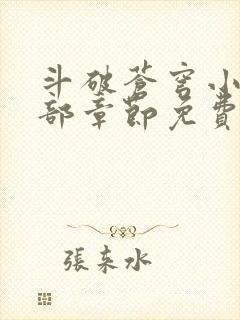 斗破蒼穹小
部章節免費
張東水